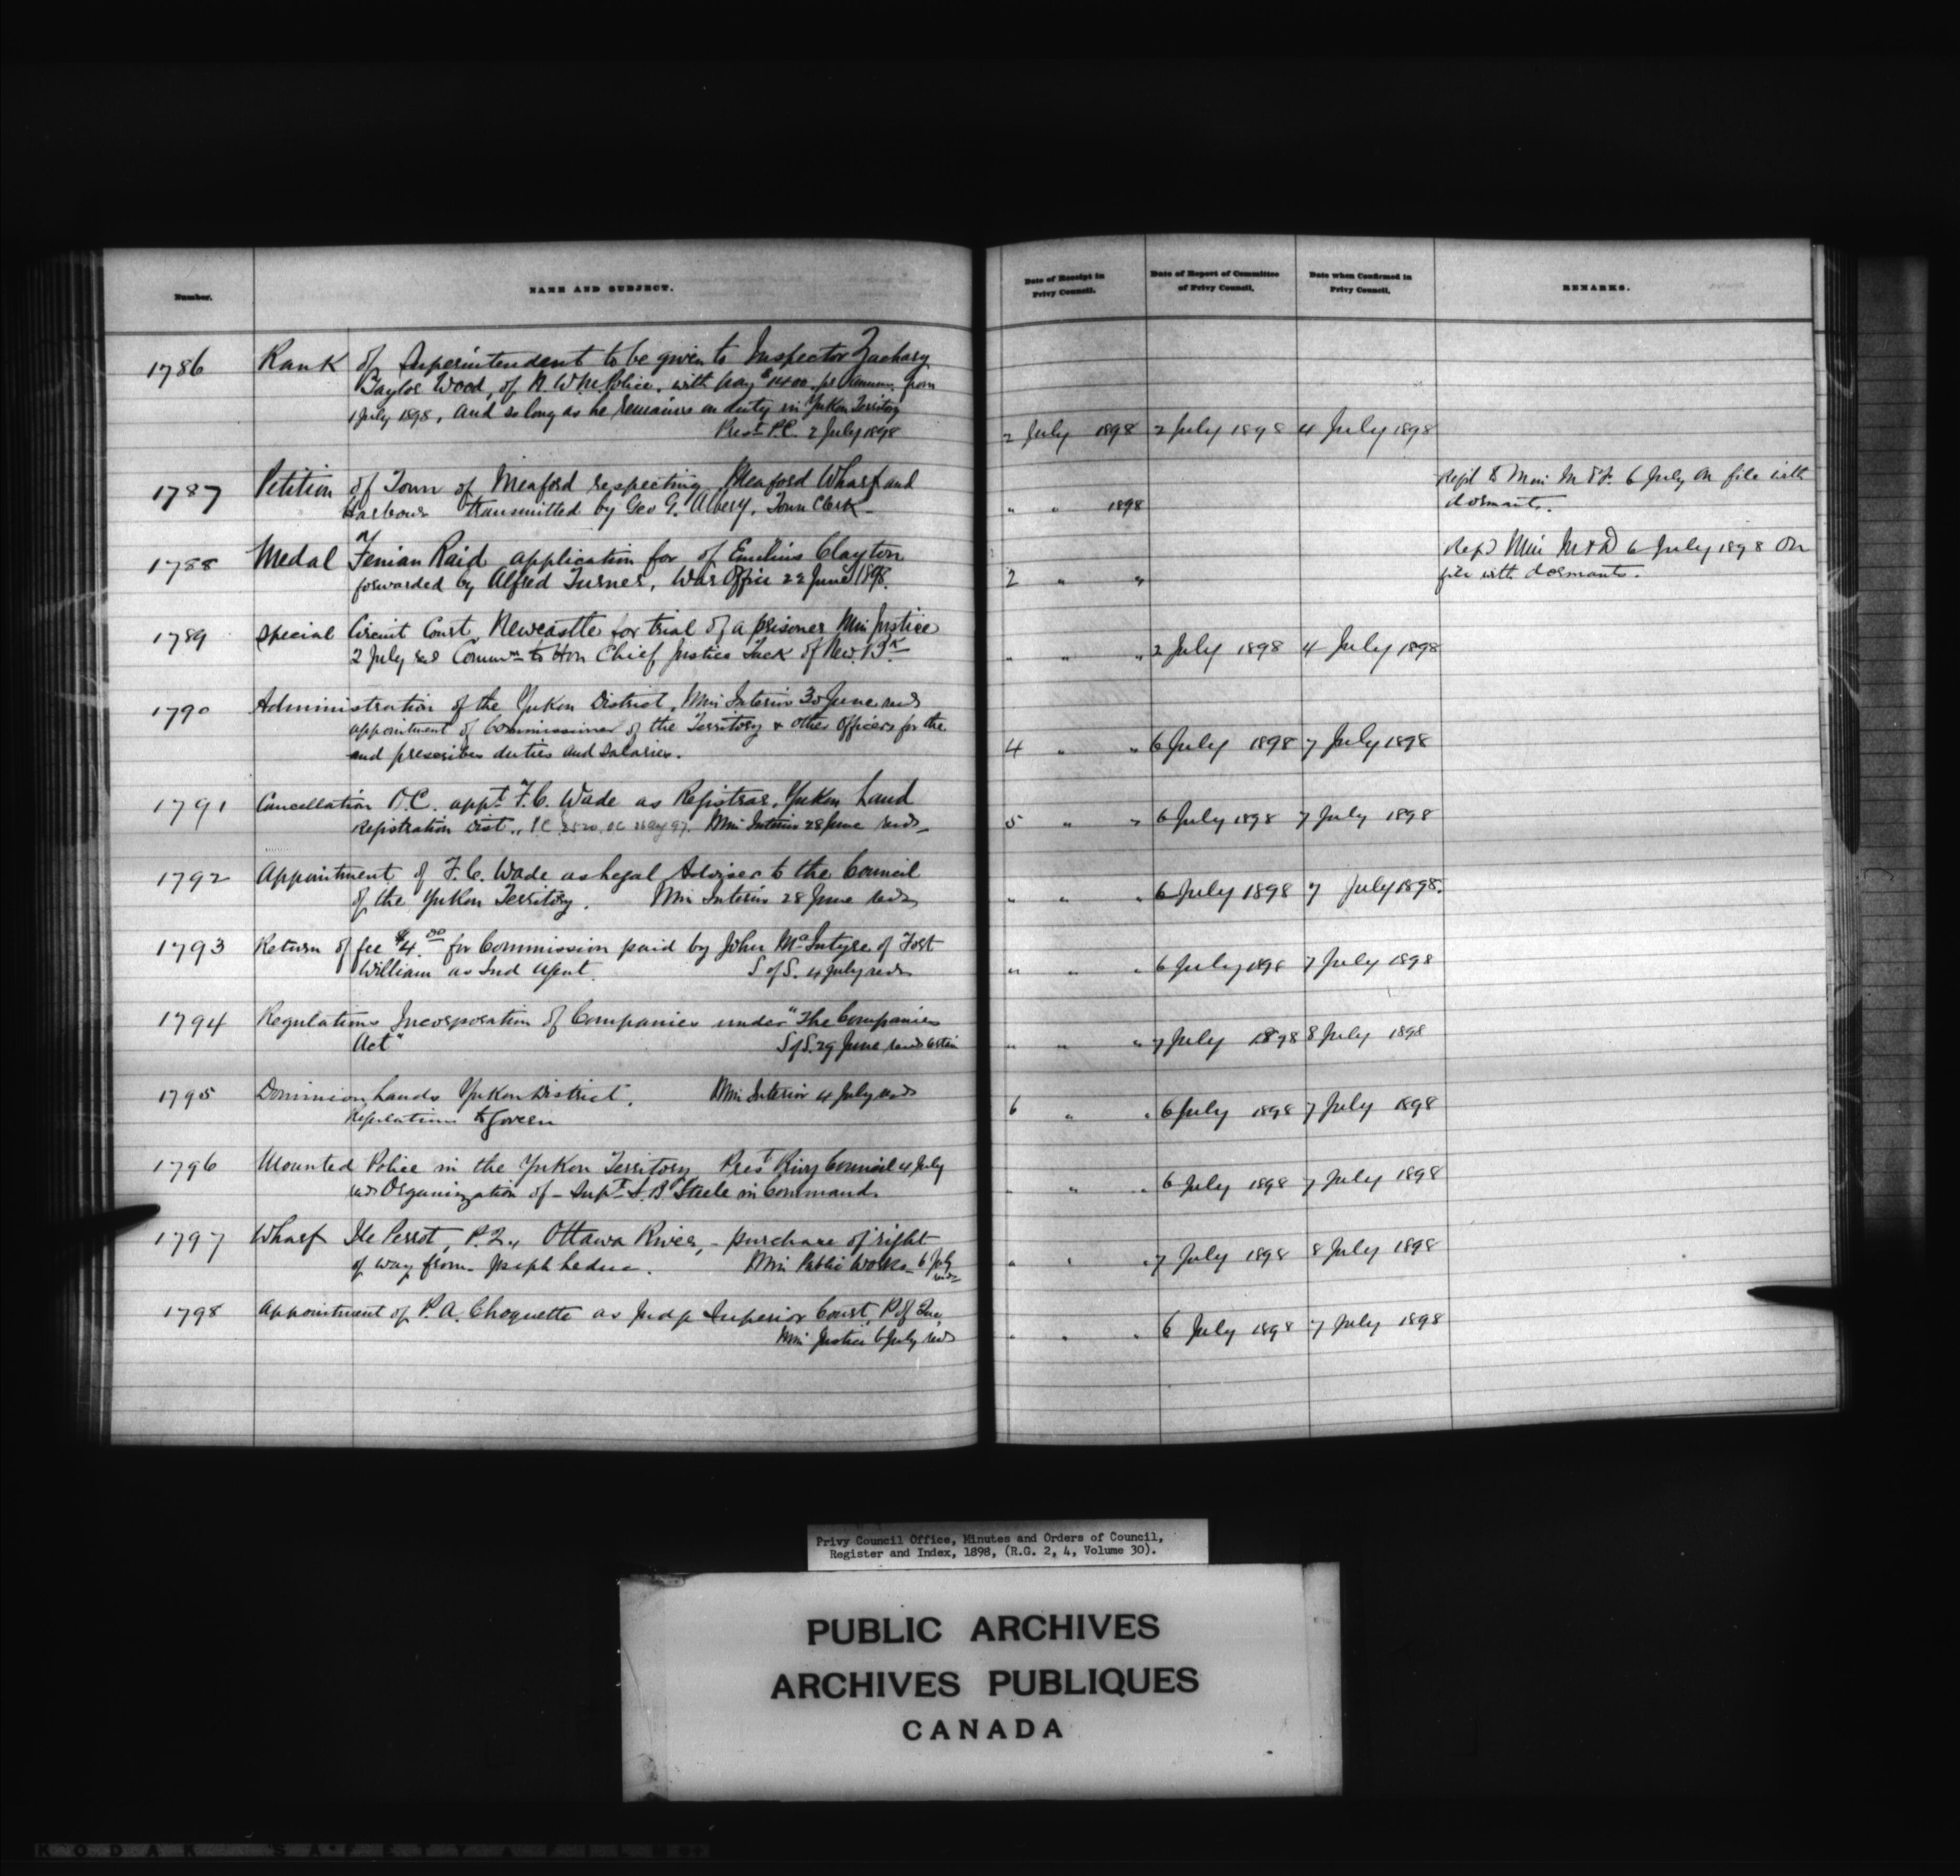 Number.
NAME AND SUBJECT.
Date of Receipt in
Privy Council.
Date of Report of Committee
of Privy Council,
Date when Confirmed in
Privy Council,
REMARKS.
1786 Rank of Superintendent to be given to Inspector Zachary
Taylor Wood, of N. W. M. Police, with pay $1400. per annum, from
1 July 1898, and so long as he remains on duty in Yukon Territory
Prest P.C. 2 July 1898
2 July 1898 2 July 1898 4 July 1898
1787 Petition of Town of Meaford respecting Meaford Wharf and
Harbour transmitted by Geo G. Albery, Town Clerk
" " 1898
Min M & F. 6 July On file with
dormants.
1788 Medal Fenian Raid application for of Emilius Clayton
forwarded by Alfred Turner, War Office 22 June 1898.
2 " "
Min M & D 6 July 1898 On
file with dormants.
1789 Special Circuit Court, Newcastle for trial of a prisoner Min Justice
2 July Commn to Hon Chief Justice Tuck of New. Bk
" " " 2 July 1898 4 July 1898
1790 Administration of the Yukon District, Min Interior 30 June recds
appointment of Commissioner of the Territory & other officers for the
and prescribes duties and salaries.
4 " " 6 July 1898 7 July 1898
1791 Cancellation O.C. appt F. C. Wade as Registrar, Yukon Land
Registration Dist., Min Interior 28 June recds
5 " " 6 July 1898 7 July 1898
1792 Appointment of F. C. Wade as Legal Adviser to the Council
of the Yukon Territory. Min Interior 28 June recds
" " " 6 July 1898 7 July 1898.
1793 Return of fee $4.00 for Commission paid by John McIntyre of Fort
William as Ind Agent. S of S. 4 July recds
" " " 6 July 1898 7 July 1898
1794 Regulations Incorporation of Companies under "The Companies
Act" S of S. 29 June recds
" " " 7 July 1898 8 July 1898
1795 Dominion Lands Yukon District. Min Interior 4 July recds
Regulations to govern
6 " " 6 July 1898 7 July 1898
1796 Mounted Police in the Yukon Territory Prest Privy Council 4 July
recds Organization of - Supt S. B. Steele in Command.
" " " 6 July 1898 7 July 1898
1797 Wharf Ile Perrot, P.Q., Ottawa River, - purchase of right
of way from Joseph Leduc. Min Public Works 6 July
recds
" " " 7 July 1898 8 July 1898
1798 Appointment of P. A. Choquette as Judge Superior Court, P of Que,
Min Justice 6 July recds
" " " 6 July 1898 7 July 1898
Privy Council Office, Minutes and Orders of Council,
Register and Index, 1898, (R.G. 2, 4, Volume 30).
PUBLIC ARCHIVES
ARCHIVES PUBLIQUES
CANADA